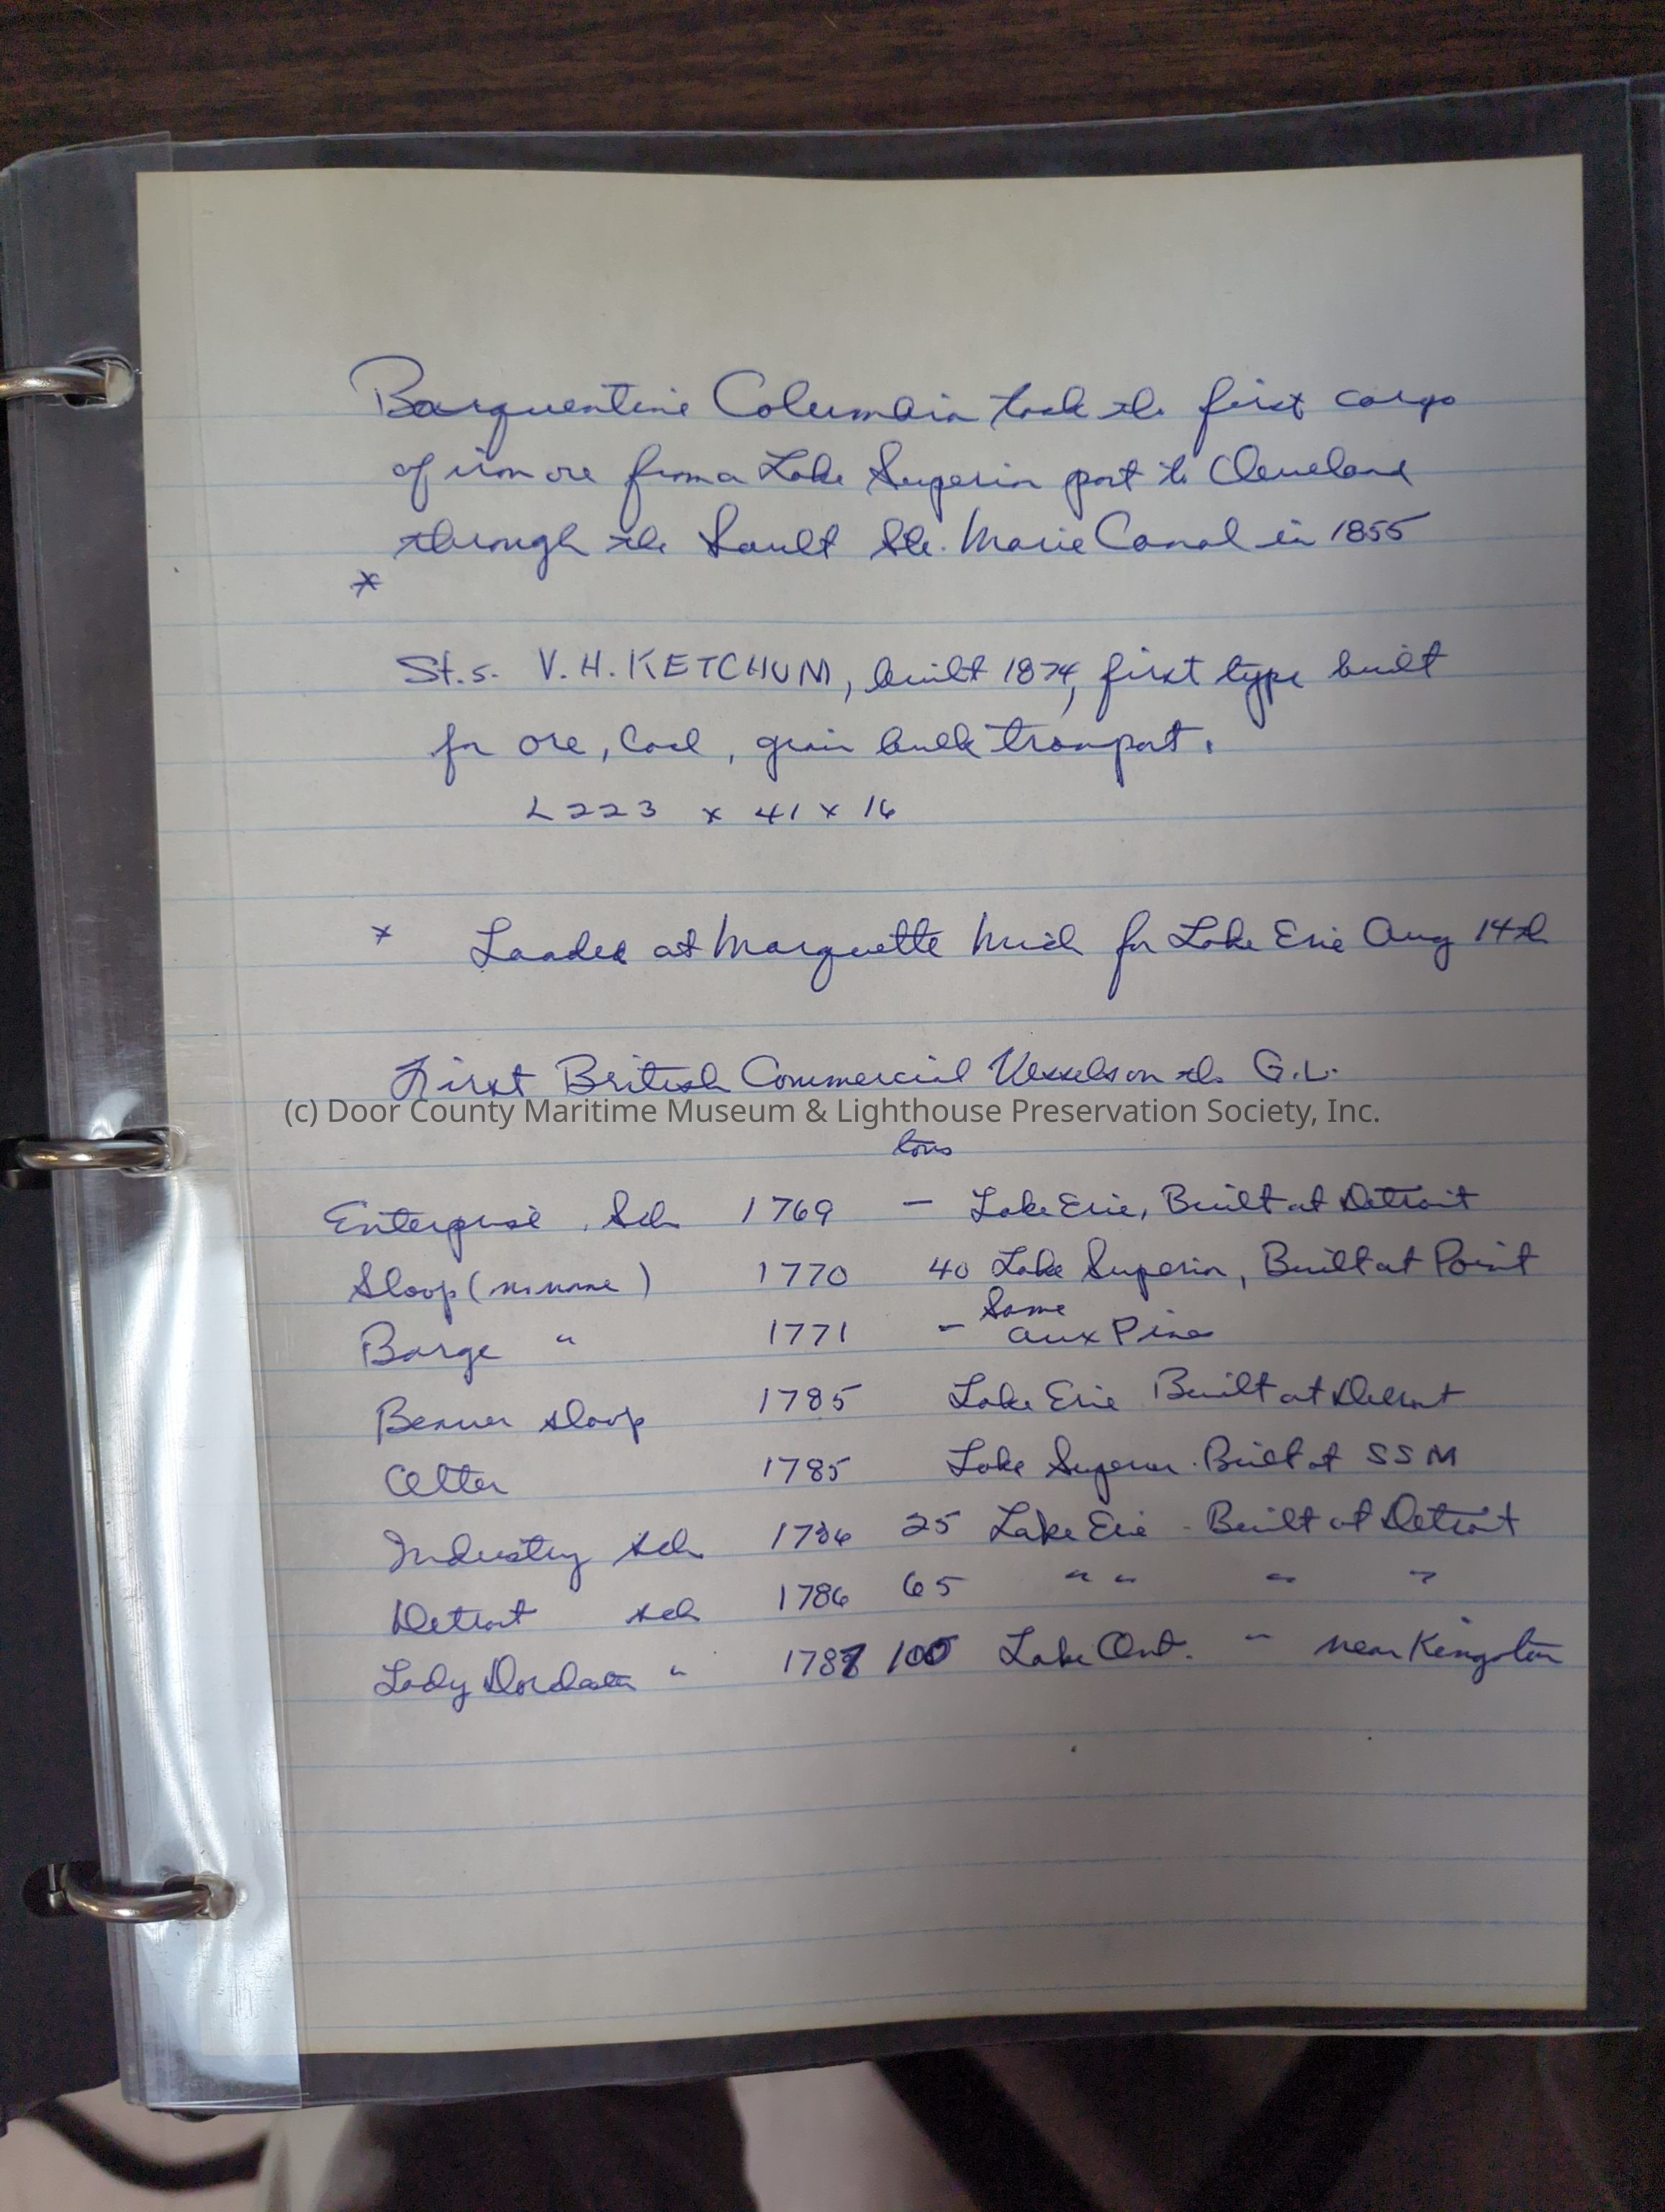 Barquentine Columbia took the first cargo
of iron ore from a Lake Superior port to Cleveland
through the Sault Ste. Marie Canal in 1855
*
St. s. V. H. KETCHUM, built 1874, first type built
for ore, coal, grain bulk transport.
L 223 x 41 x 16
* Loaded at Marquette Mich for Lake Erie Aug 14th
First British Commercial Vessels on the G.L.
(c) Door County Maritime Museum & Lighthouse Preservation Society, Inc.
tons
Enterprise Sch 1769 - Lake Erie, Built at Detroit
Sloop (no name) 1770 40 Lake Superior, Built at Point
Same
Barge " 1771 - aux Pins
Beaver sloop 1785 Lake Erie Built at Detroit
Otter 1785 Lake Superior. Built at SSM
Industry sch 1786 25 Lake Erie - Built at Detroit
Detroit sch 1786 65 " " " "
Lady 1787 100 Lake Ont. " near Kingston